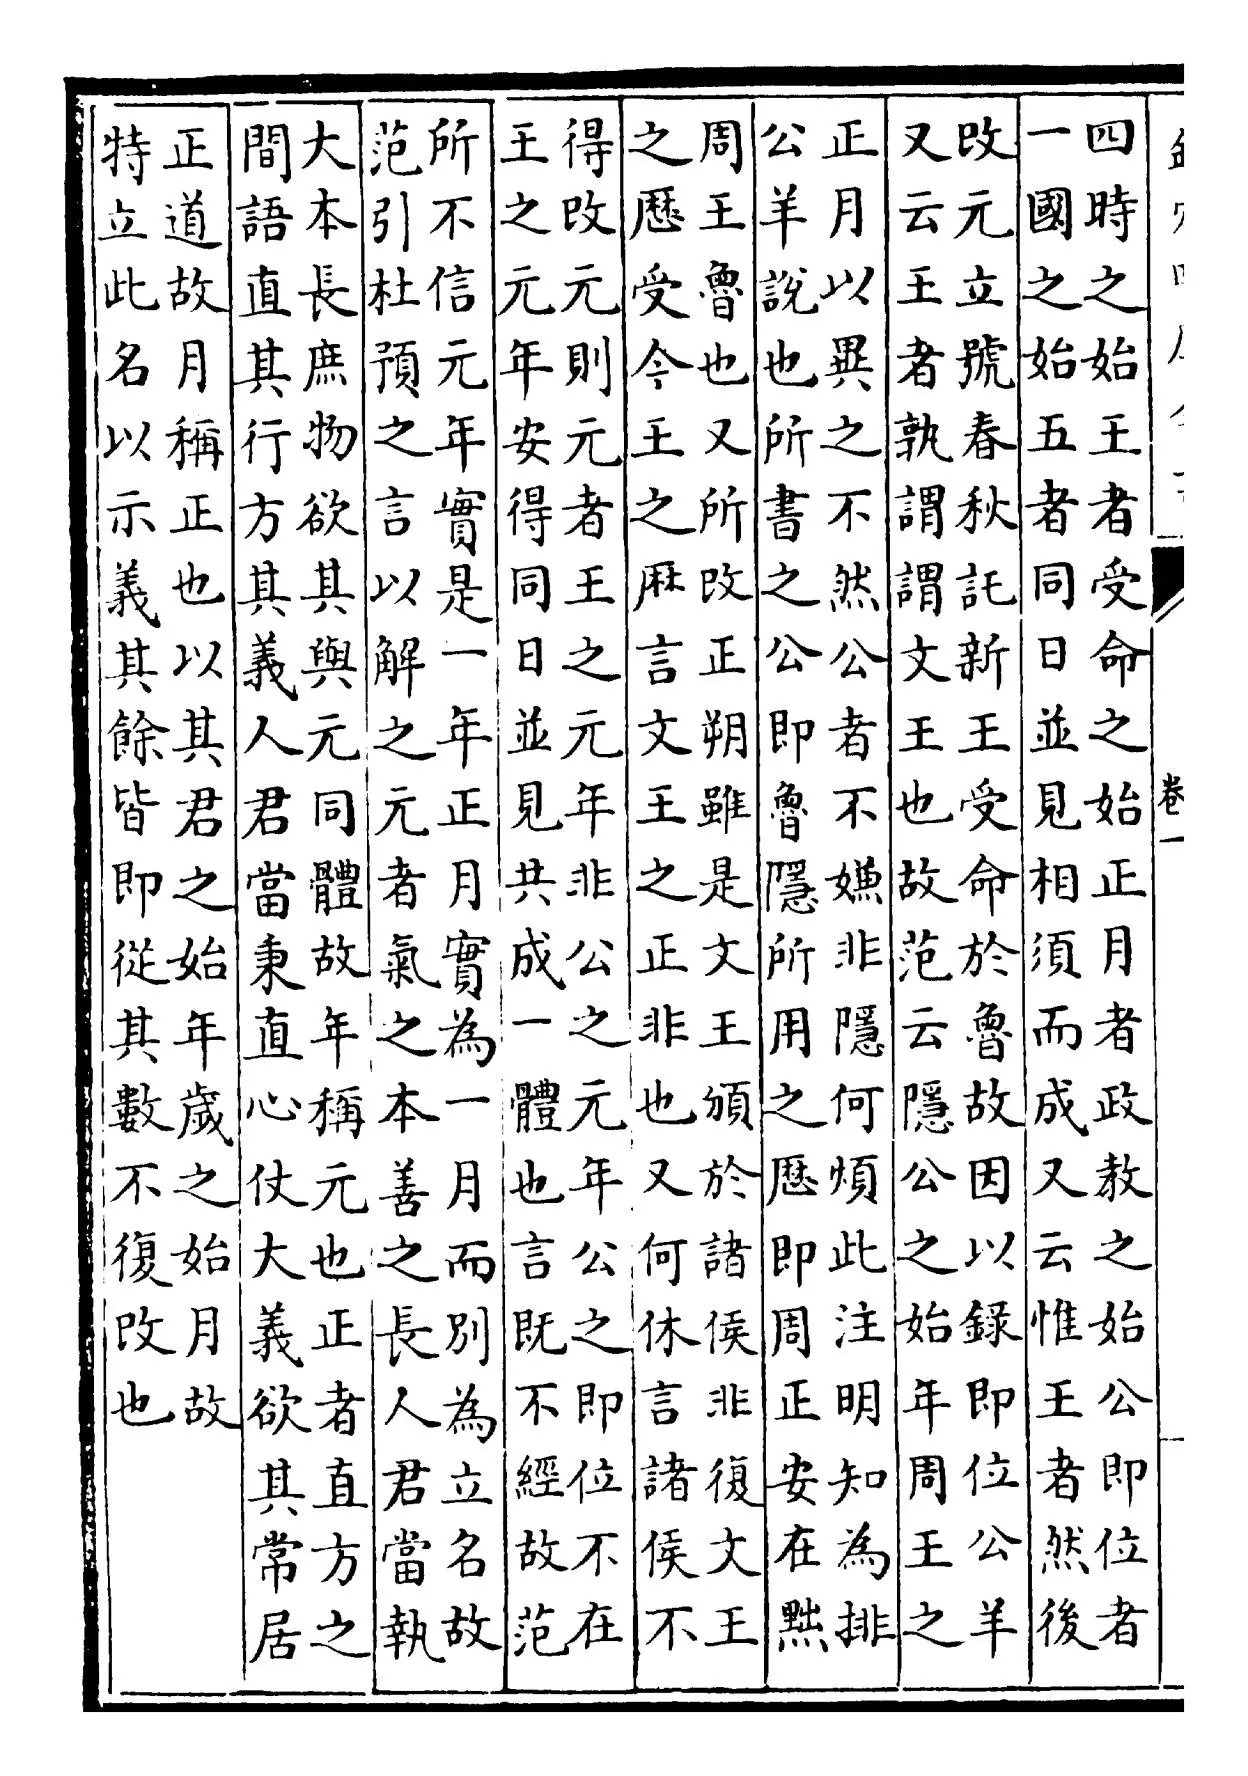 卷一
四時之始王者受命之始正月者政教之始公即位者
一國之始五者同日並見相須而成又云惟王者然後
改元立號春秋託新王受命於魯故因以錄即位公羊
又云王者孰謂謂文王也故范云隱公之始年周王之
正月以異之不然公者不嫌非隱何煩此注明知為排
公羊說也所書之公即魯隱所用之歷即周正安在黜
周王魯也又所改正朔雖是文王頒於諸侯非復文王
之歷受今王之厤言文王之正非也又何休言諸侯不
得改元則元者王之元年非公之元年公之即位不在
王之元年安得同日並見共成一體也言既不經故范
所不信元年實是一年正月實為一月而別為立名故
范引杜預之言以解之元者氣之本善之長人君當執
大本長庶物欲其與元同體故年稱元也正者直方之
間語直其行方其義人君當秉直心仗大義欲其常居
正道故月稱正也以其君之始年歲之始月故
特立此名以示義其餘皆即從其數不復改也